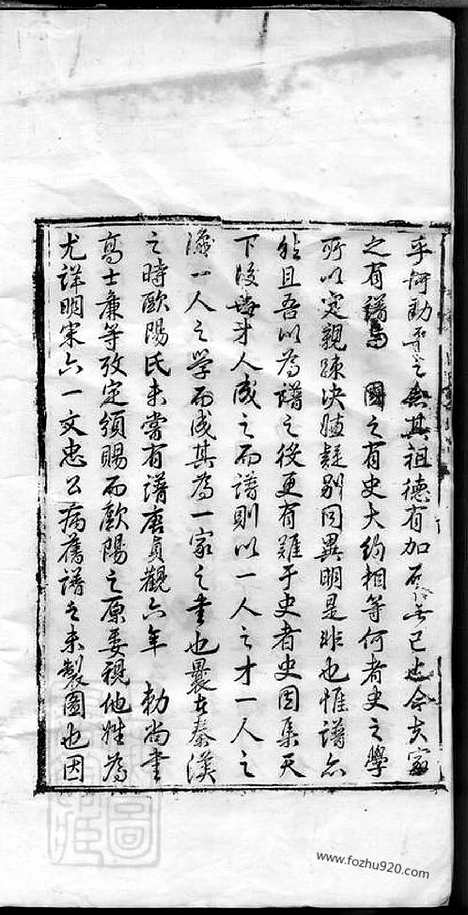 乎何勛乎之無其祖德有加而無已也今夫家
之有譜與 國之有史大約相等何者史之學
所以定親疎決嫌疑別同異明是非也惟譜亦
然且吾以為譜之後更有難于史者史固集天
下後世才人成之而譜則以一人之才一人之
識一人之學而成其為一家之書也曩在秦漢
之時歐陽氏未嘗有譜唐貞觀六年 勅尚書
高士廉等攷定頒賜而歐陽之原委視他姓為
尤詳明宋六一文忠公病舊譜之未製圖也因
http://www.fozhu920.com/